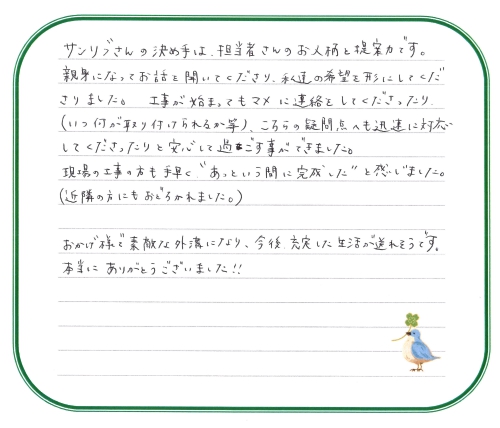 サンリブさんの決め手は、担当者さんのお人柄と提案力です。
親身になってお話を聞いてくださり、私達の希望を形にしてくだ
さりました。 工事が始まってもマメに連絡をしてくださったり、
(いつ何が取り付けられるか等)、こちらの疑問点へも迅速に対応
してくださったりと安心して過ごす事ができました。
現場の工事の方も手早く、“あっという間に完成した”と感じました。
(近隣の方にもおどろかれました。)
おかげ様で素敵な外溝になり、今後、充実した生活が送れそうです。
本当にありがとうございました!!